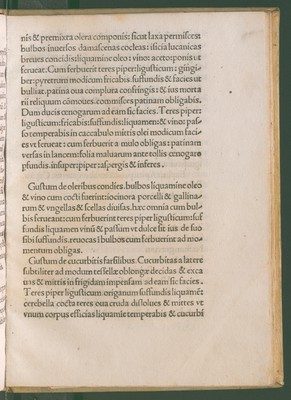 nis & premixta olera componis: sicut laxa permisces:
bulbos inuersos damascenas cocleas: isicia lucanicas
breues concidis: liquamine oleo: uino: aceto: ponis ut
ferueat. Cum ferbuerit teres piper: ligusticum: gingi-
ber: pyretrum modicum fricabis suffundis & facies ut
bulliat. patina oua complura confringis: & ius morta
rii reliquum cōmoues. commisces patinam obligabis.
Dum ducis cenogarum ad eam sic facies. Teres piper:
ligusticum: fricabis: suffundis: liquamen: & uino: pas-
so temperabis in caccabulo mittis olei modicum faci-
es ut ferueat: cum ferbuerit amulo obligas: patinam
uersas in lancem: folia maluarum ante tollis cenogaro
pfundis. insuper: piper: aspergis & inferes.
Gustum de oleribus condies. bulbos liquamine oleo
& uino cum cocti fuerint iocinora porcelli & gallina-
rum & ungellas & scellas diuisas. hæc omnia cum bul-
bis ferueant: cum ferbuerint teres piper ligusticum: suf
fundis liquamen uinū & passum ut dulce sit ius de suo
sibi suffundis. reuocas I bulbos cum ferbuerint ad mo-
mentum obligas.
Gustum de cucurbitis farsilibus. Cucurbitas a latere
subtiliter ad modum tessellæ oblongæ decidas & exca
uas & mittis in frigidam impensam ad eam sic facies.
Teres piper ligusticum: origanum suffundis liquamē:
cerebella cocta teres oua cruda dissolues & mittes ut
unum corpus efficias liquamīe temperabis & cucurbi